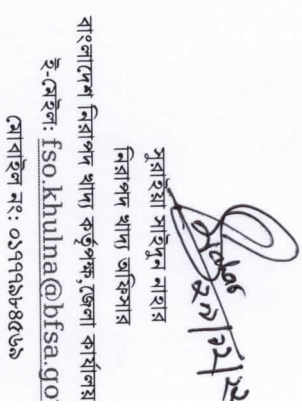 ২৯/১২/২২
সুরাইয়া সাইদুন নাহার
নিরাপদ খাদ্য অফিসার
বাংলাদেশ নিরাপদ খাদ্য কর্তৃপক্ষ,জেলা কার্যালয়
ই-মেইল: fso.khulna@bfsa.go
মোবাইল নং: ০১৭৭৭৯৮৪৫৬৯